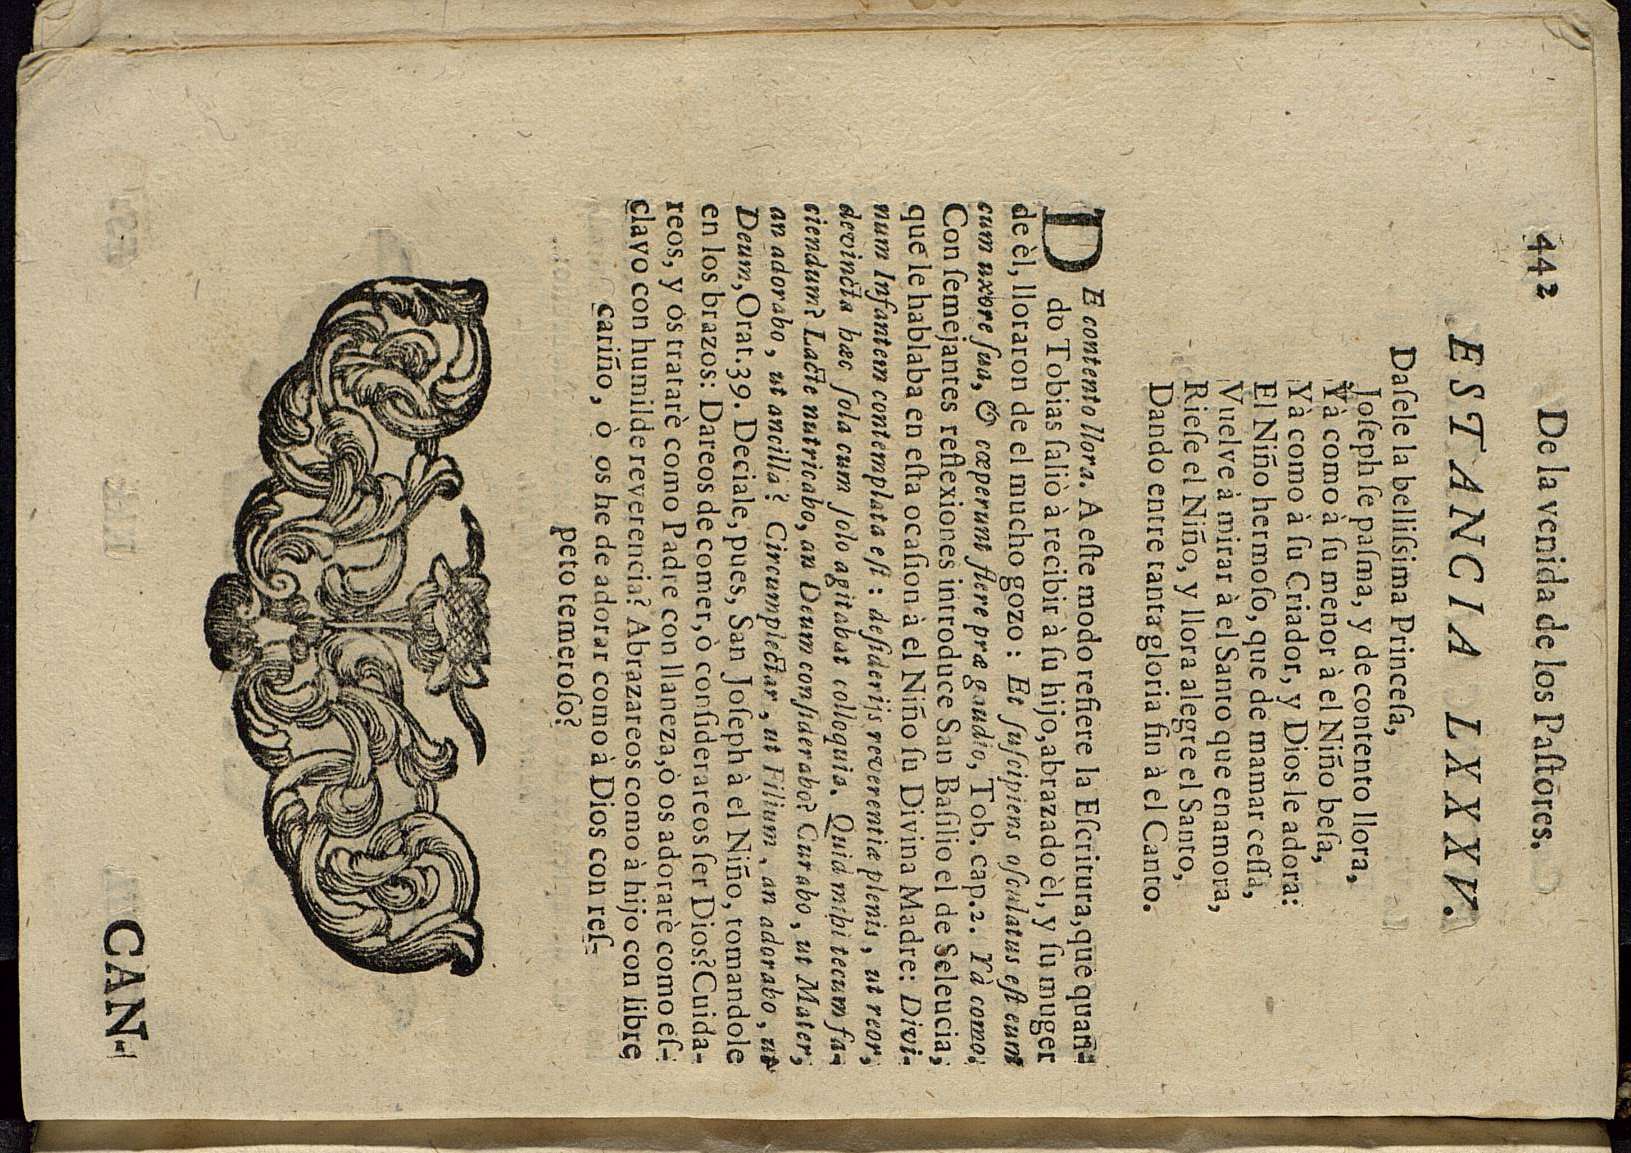 442 De la venida de los Paſtores.
ESTANCIA LXXXV.
Daſele la belliſsima Princeſa,
Joſeph ſe paſma, y de contento llora,
Yà como à ſu menor à el Niño beſa,
Yà como à ſu Criador, y Dios le adora:
El Niño hermoſo, que de mamar ceſſa,
Vuelve à mirar à el Santo que enamora,
Rieſe el Niño, y llora alegre el Santo,
Dando entre tanta gloria fin à el Canto.
DE contento llora. A eſte modo refiere la Eſcritura, que quan-
do Tobias ſaliò à recibir à ſu hijo, abrazado èl, y ſu muger
de èl, lloraron de el mucho gozo: Et ſuſcipiens oſculatus eſt eum
cum uxore ſua, & cœperunt flere præ gaudio, Tob. cap. 2. Yà como:
Con ſemejantes reflexiones introduce San Baſilio el de Seleucia,
que le hablaba en eſta ocaſion à el Niño ſu Divina Madre: Divi-
num Infantem contemplata eſt: deſiderijs reverentiæ plenis, ut reor,
devincta hæc ſola cum ſolo agitabat colloquia. Quid mihi tecum fa-
ciendum? Lacte nutricabo, an Deum conſiderabo? Curabo, ut Mater,
an adorabo, ut ancilla? Circumplectar, ut Filium, an adorabo, ut
Deum, Orat. 39. Deciale, pues, San Joſeph à el Niño, tomandole
en los brazos: Dareos de comer, ò conſiderareos ſer Dios? Cuida-
reos, y os tratarè como Padre con llaneza, ò os adorarè como eſ-
clavo con humilde reverencia? Abrazareos como à hijo con libre
cariño, ò os he de adorar como à Dios con reſ-
peto temeroſo?
CAN-